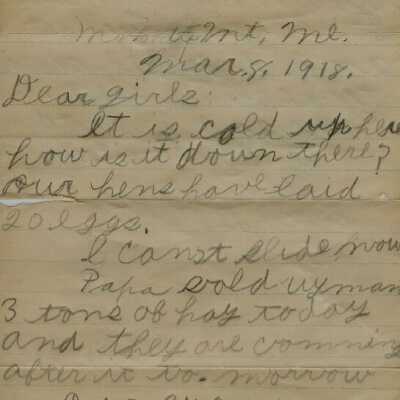 Mt, Me.
Mar. 8, 1918.
Dear girls:
It is cold up here
how is it down there?
Our hens have laid
20 eggs.
I canst slide now
Papa sold uyman
3 tons of hay today
and they are comming
after it to. morrow